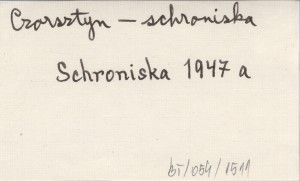 Czorsztyn — schroniska
Schroniska 1947 a
bT/054/1511